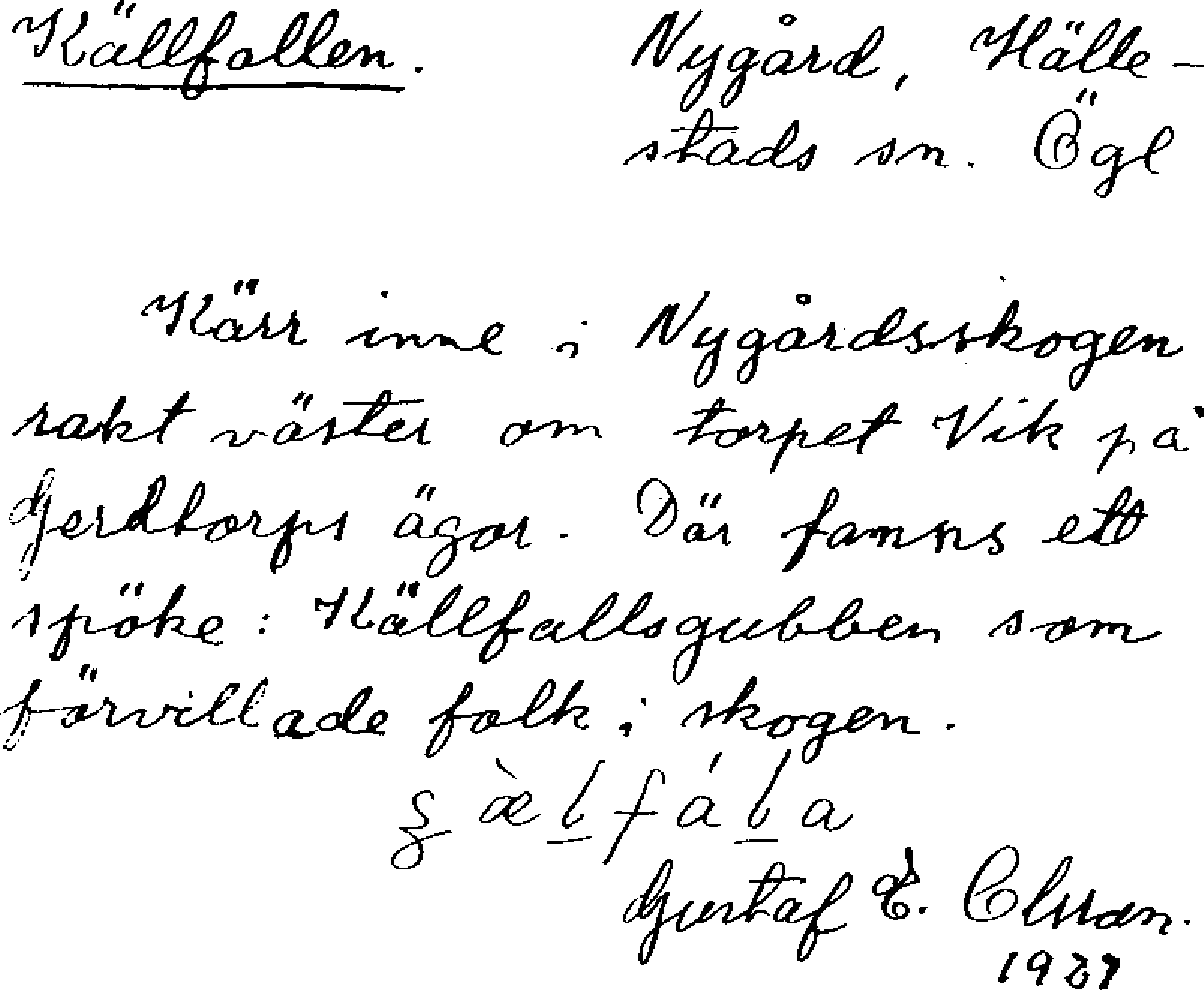 Källfallen. Nygård, Hälle-
stads sn. Ögl
Kärr inne i Nygårdsskogen
rakt väster om torpet Vik på
Gerdtorps ägor. Där fanns ett
spöke: Källfallsgubben som
förvillade folk i skogen.
Gustaf E. Olsson.